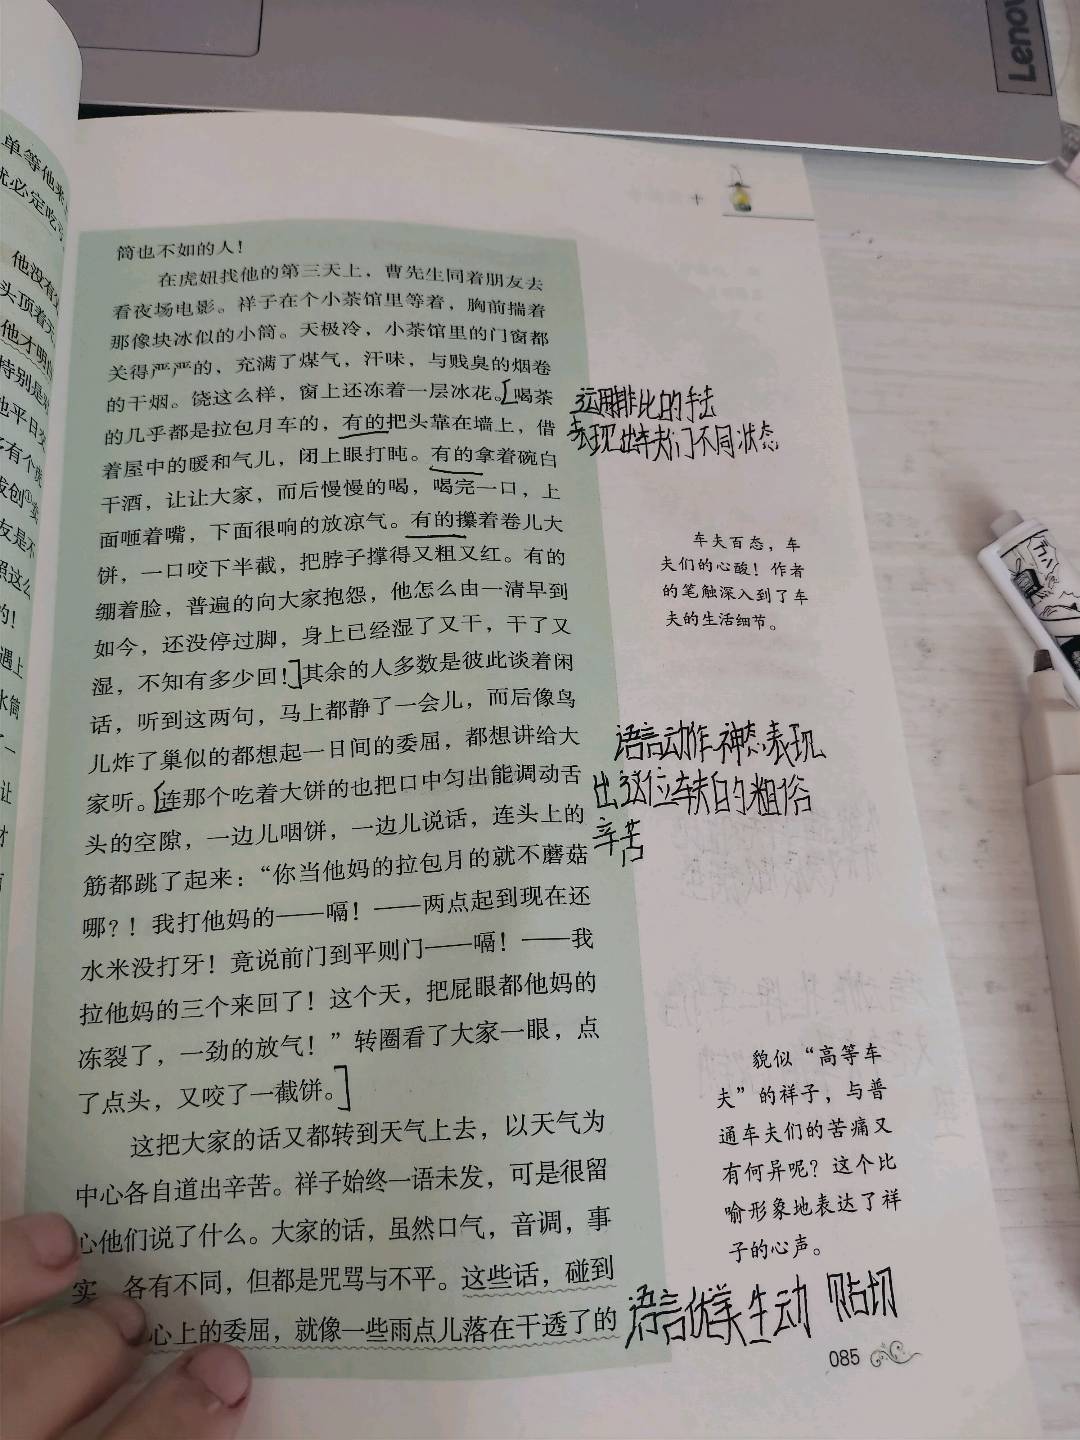 Lenovo
单等他来
就必定吃亏
他没有
头顶着天
他才明白
特别是对
他平日
友是不
照这么
的！
遇上
水筒
了一
让
才
十
筒也不如的人！
在虎妞找他的第三天上，曹先生同着朋友去
看夜场电影。祥子在个小茶馆里等着，胸前揣着
那像块冰似的小筒。天极冷，小茶馆里的门窗都
关得严严的，充满了煤气，汗味，与贱臭的烟卷
的干烟。饶这么样，窗上还冻着一层冰花。[喝茶
的几乎都是拉包月车的，有的把头靠在墙上，借
着屋中的暖和气儿，闭上眼打盹。有的拿着碗白
干酒，让让大家，而后慢慢的喝，喝完一口，上
面咂着嘴，下面很响的放凉气。有的攥着卷儿大
饼，一口咬下半截，把脖子撑得又粗又红。有的
绷着脸，普遍的向大家抱怨，他怎么由一清早到
如今，还没停过脚，身上已经湿了又干，干了又
湿，不知有多少回！]其余的人多数是彼此谈着闲
话，听到这两句，马上都静了一会儿，而后像鸟
儿炸了巢似的都想起一日间的委屈，都想讲给大
家听。[连那个吃着大饼的也把口中匀出能调动舌
头的空隙，一边儿咽饼，一边儿说话，连头上的
筋都跳了起来：“你当他妈的拉包月的就不蘑菇
哪？！我打他妈的——嗝！——两点起到现在还
水米没打牙！竟说前门到平则门——嗝！——我
拉他妈的三个来回了！这个天，把屁眼都他妈的
冻裂了，一劲的放气！”转圈看了大家一眼，点
了点头，又咬了一截饼。]
这把大家的话又都转到天气上去，以天气为
中心各自道出辛苦。祥子始终一语未发，可是很留
心他们说了什么。大家的话，虽然口气，音调，事
实 各有不同，但都是咒骂与不平。这些话，碰到
心上的委屈，就像一些雨点儿落在干透了的
运用排比的手法
表现出车夫们不同状态
车夫百态，车
夫们的心酸！作者
的笔触深入到了车
夫的生活细节。
语言动作神态表现
出这位车夫的粗俗
辛苦
貌似“高等车
夫”的祥子，与普
通车夫们的苦痛又
有何异呢？这个比
喻形象地表达了祥
子的心声。
语言优美生动 贴切
085